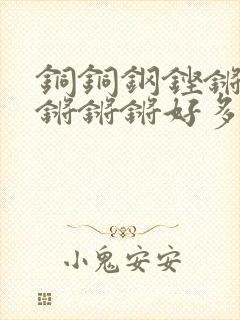 銅銅鋼鏗鏘
鏘鏘鏘好多
小鬼安安